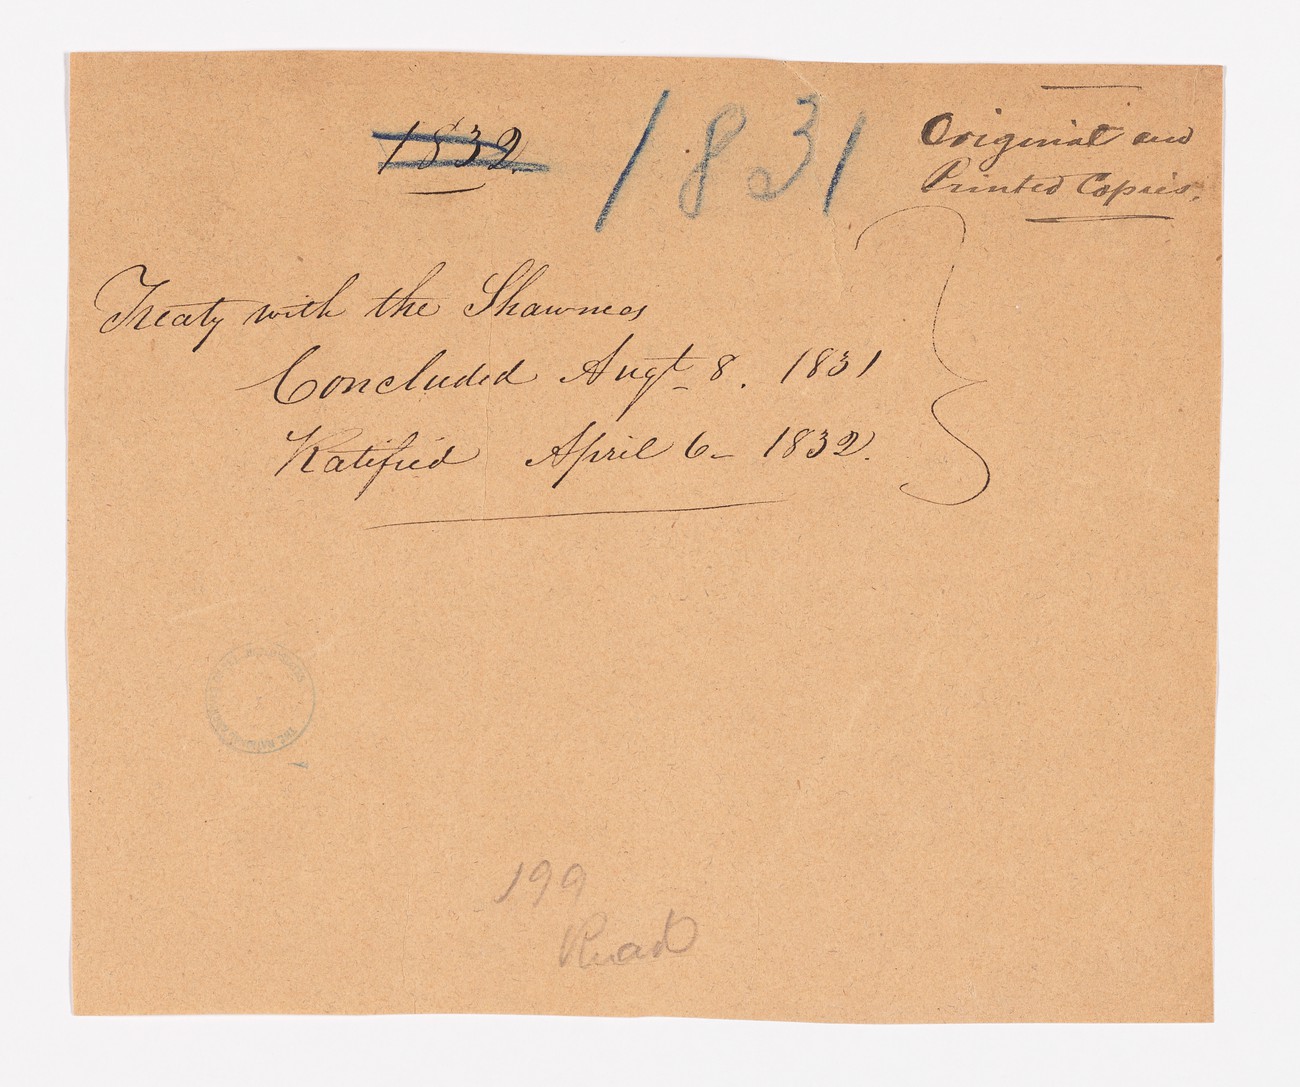 1832.
1831
Original and
Printed Copies.
Treaty with the Shawnees
Concluded Augt 8. 1831
Ratified April 6 - 1832.
199